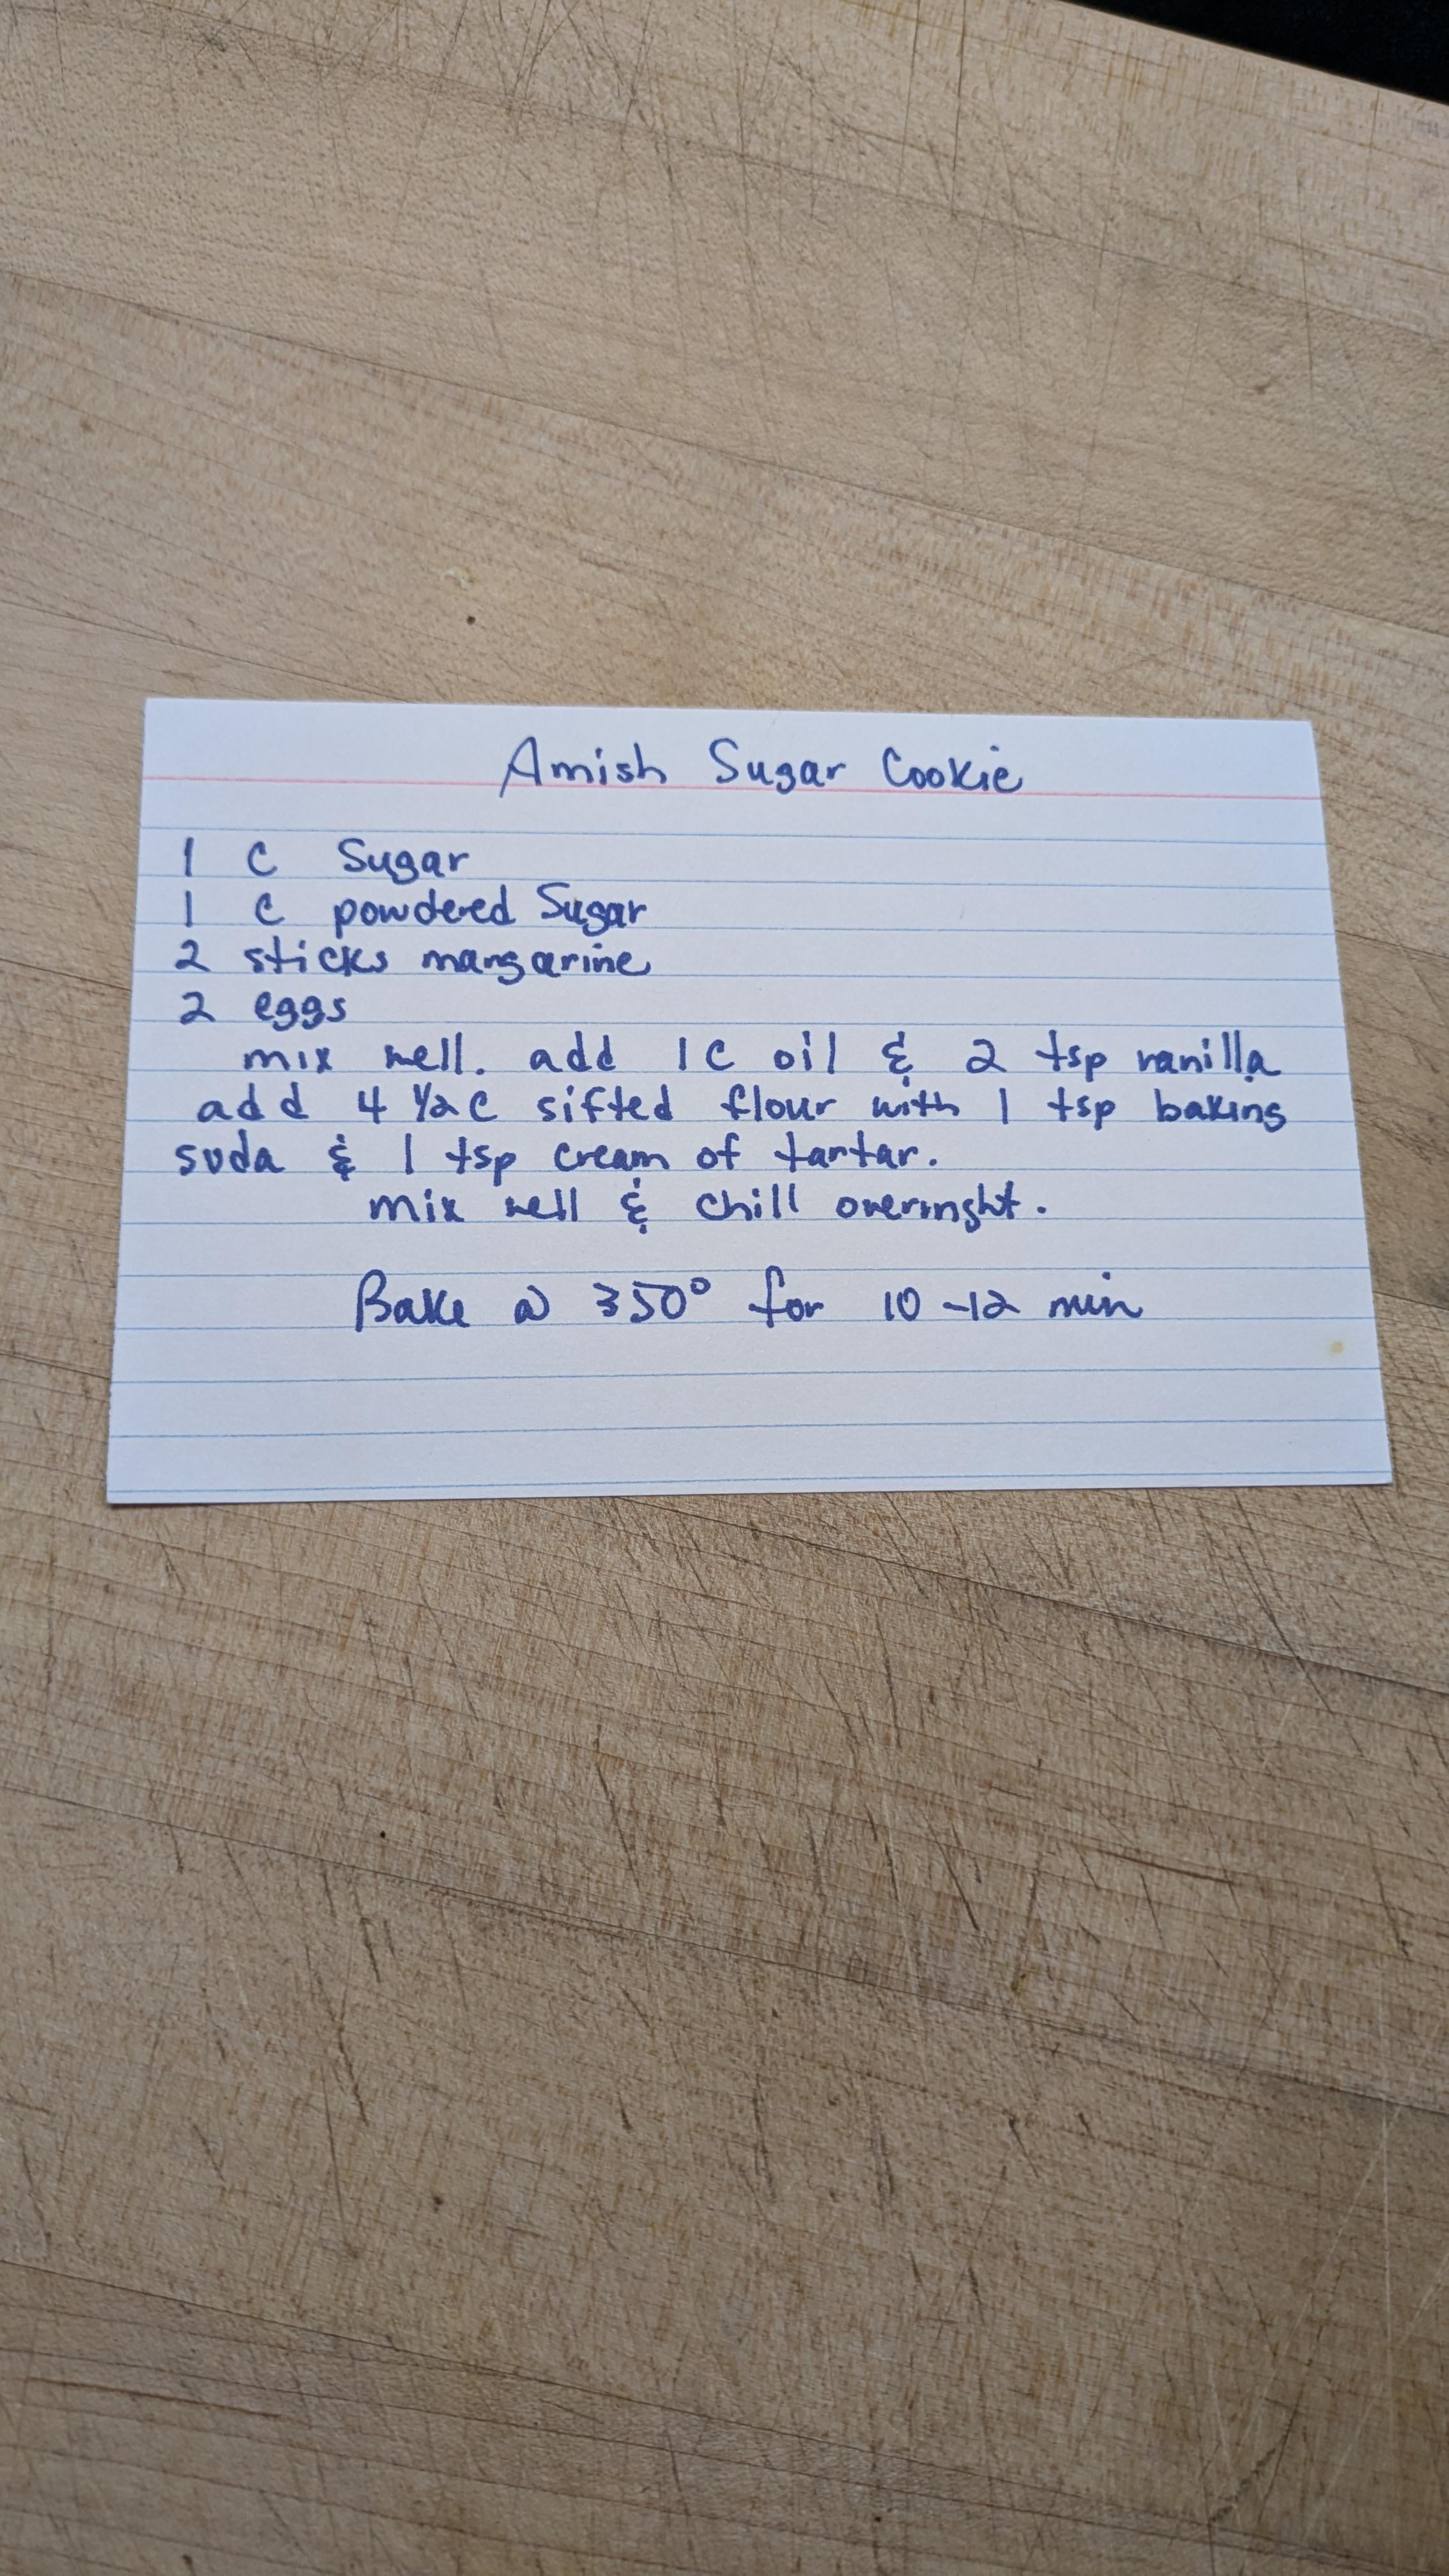 Amish Sugar Cookie
1 C Sugar
1 C powdered Sugar
2 sticks margarine
2 eggs
mix well. add 1C oil & 2 tsp vanilla
add 4 1/2 C sifted flour with 1 tsp baking
soda & 1 tsp cream of tartar.
mix well & chill overinght.
Bake @ 350° for 10-12 min